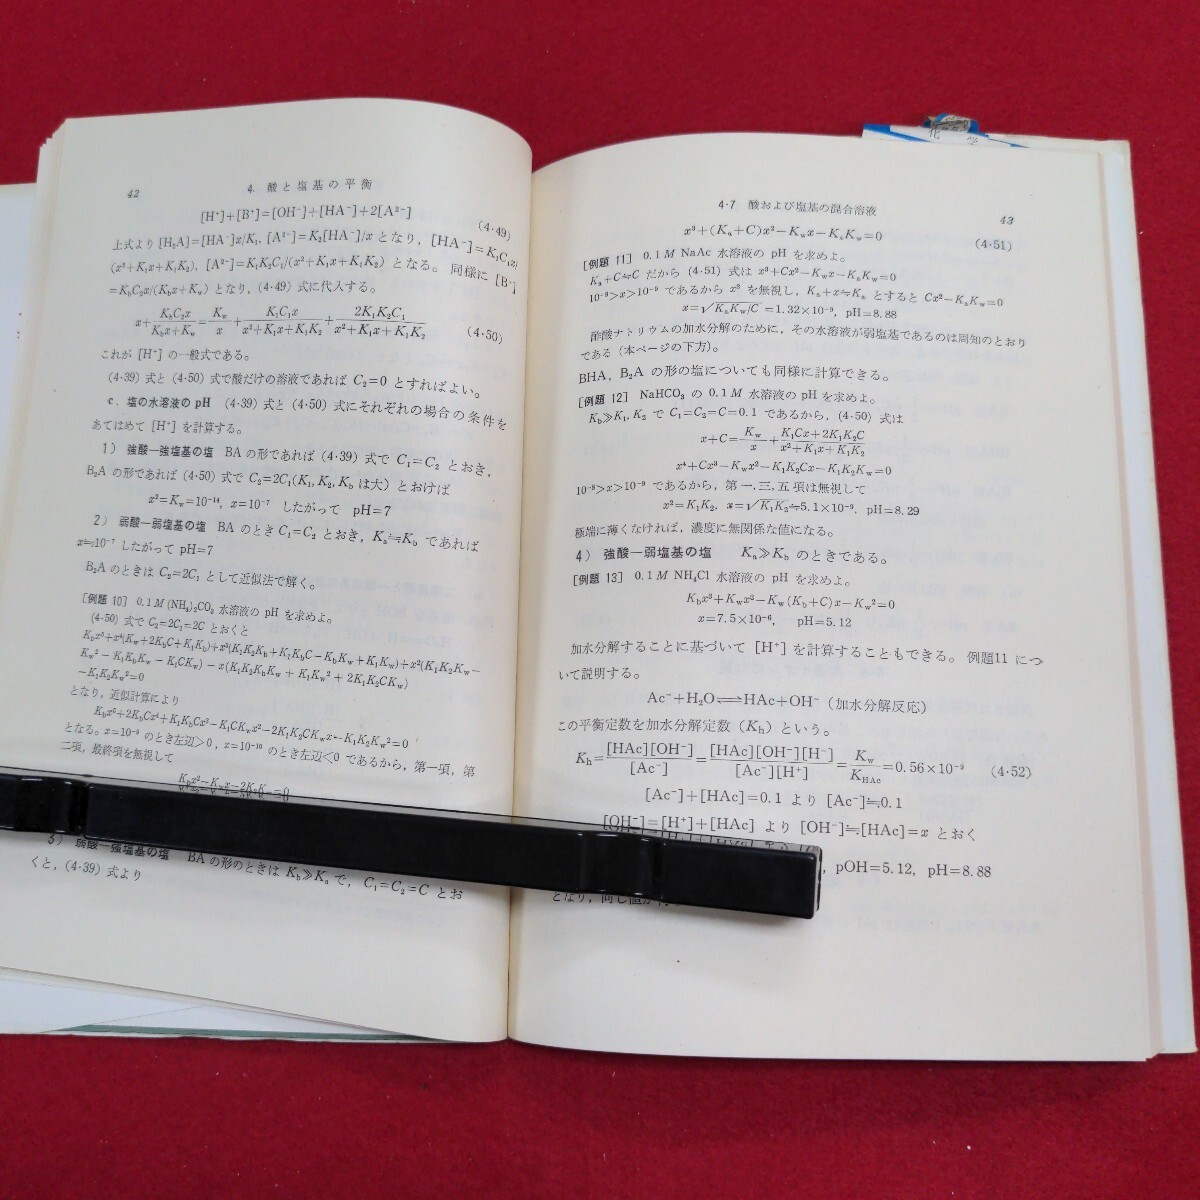 42
4. 酸と塩基の平衡
[H⁺]+[B⁺]=[OH⁻]+[HA⁻]+2[A²⁻] (4・49)
上式より [H₂A]=[HA⁻]x/K₁, [A²⁻]=K₂[HA⁻]/x となり, [HA⁻]=K₁C₁x/
(x²+K₁x+K₁K₂), [A²⁻]=K₁K₂C₁/(x²+K₁x+K₁K₂) となる。同様に [B⁺]
=K_bC₂x/(K_bx+K_w) となり, (4・49) 式に代入する。
x+K_bC₂x/(K_bx+K_w)=K_w/x+K₁C₁x/(x²+K₁x+K₁K₂)+2K₁K₂C₁/(x²+K₁x+K₁K₂) (4・50)
これが [H⁺] の一般式である。
(4・39) 式と (4・50) 式で酸だけの溶液であれば C₂=0 とすればよい。
c. 塩の水溶液の pH (4・39) 式と (4・50) 式にそれぞれの場合の条件を
あてはめて [H⁺] を計算する。
1) 強酸—強塩基の塩 BA の形であれば (4・39) 式で C₁=C₂ とおき,
B₂A の形であれば (4・50) 式で C₂=2C₁(K₁, K₂, K_b は大) とおけば
x²=K_w=10⁻¹⁴, x=10⁻⁷ したがって pH=7
2) 弱酸—弱塩基の塩 BA のとき C₁=C₂ とおき, K_a≒K_b であれば
x≒10⁻⁷ したがって pH=7
B₂A のときは C₂=2C₁ として近似法で解く。
[例題 10] 0.1 M (NH₄)₂CO₃ 水溶液の pH を求めよ。
(4・50) 式で C₂=2C₁=2C とおくと
K_bx⁵+x⁴(K_w+2K_bC+K₁K_b)+x³(K₁K₂K_b+K₁K_bC−K_bK_w+K₁K_w)+x²(K₁K₂K_w−
K_w²−K₁K_bK_w−K₁CK_w)−x(K₁K₂K_bK_w+K₁K_w²+2K₁K₂CK_w)
−K₁K₂K_w²=0
となり, 近似計算により
K_bx⁵+2K_bCx⁴+K₁K_bCx³−K₁CK_wx²−2K₁K₂CK_wx−K₁K₂K_w²=0
となる。x=10⁻⁹ のとき左辺>0, x=10⁻¹⁰ のとき左辺<0 であるから, 第一項, 第
二項, 最終項を無視して
K_bx²−K_wx−2K₂K_w=0
3) 弱酸—強塩基の塩 BA の形のときは K_b≫K_a で, C₁=C₂=C とお
くと, (4・39) 式より
化 学
4・7 酸および塩基の混合溶液
43
x³+(K_a+C)x²−K_wx−K_aK_w=0 (4・51)
[例題 11] 0.1 M NaAc 水溶液の pH を求めよ。
K_a+C≒C だから (4・51) 式は x³+Cx²−K_wx−K_aK_w=0
10⁻⁸>x>10⁻⁹ であるから x³ を無視し, K_a+x≒K_a とすると Cx²−K_aK_w=0
x=√(K_aK_w/C)=1.32×10⁻⁹, pH=8.88
酢酸ナトリウムの加水分解のために, その水溶液が弱塩基であるのは周知のとおり
である (本ページの下方)。
BHA, B₂A の形の塩についても同様に計算できる。
[例題 12] NaHCO₃ の 0.1 M 水溶液の pH を求めよ。
K_b≫K₁, K₂ で C₁=C₂=C=0.1 であるから, (4・50) 式は
x+C=K_w/x+(K₁Cx+2K₁K₂C)/(x²+K₁x+K₁K₂)
x⁴+Cx³−K_wx²−K₁K₂Cx−K₁K₂K_w=0
10⁻⁸>x>10⁻⁹ であるから, 第一, 三, 五項は無視して
x²=K₁K₂, x=√(K₁K₂)≒5.1×10⁻⁹, pH=8.29
極端に薄くなければ, 濃度に無関係な値になる。
4) 強酸—弱塩基の塩 K_a≫K_b のときである。
[例題 13] 0.1 M NH₄Cl 水溶液の pH を求めよ。
K_bx³+K_wx²−K_w(K_b+C)x−K_w²=0
x=7.5×10⁻⁶, pH=5.12
加水分解することに基づいて [H⁺] を計算することもできる。例題11 につ
いて説明する。
Ac⁻+H₂O⇌HAc+OH⁻ (加水分解反応)
この平衡定数を加水分解定数 (K_h) という。
K_h=[HAc][OH⁻]/[Ac⁻]=[HAc][OH⁻][H⁺]/[Ac⁻][H⁺]=K_w/K_HAc=0.56×10⁻⁹ (4・52)
[Ac⁻]+[HAc]=0.1 より [Ac⁻]≒0.1
[OH⁻]=[H⁺]+[HAc] より [OH⁻]≒[HAc]=x とおく
, pOH=5.12, pH=8.88
となり, 同じ値が